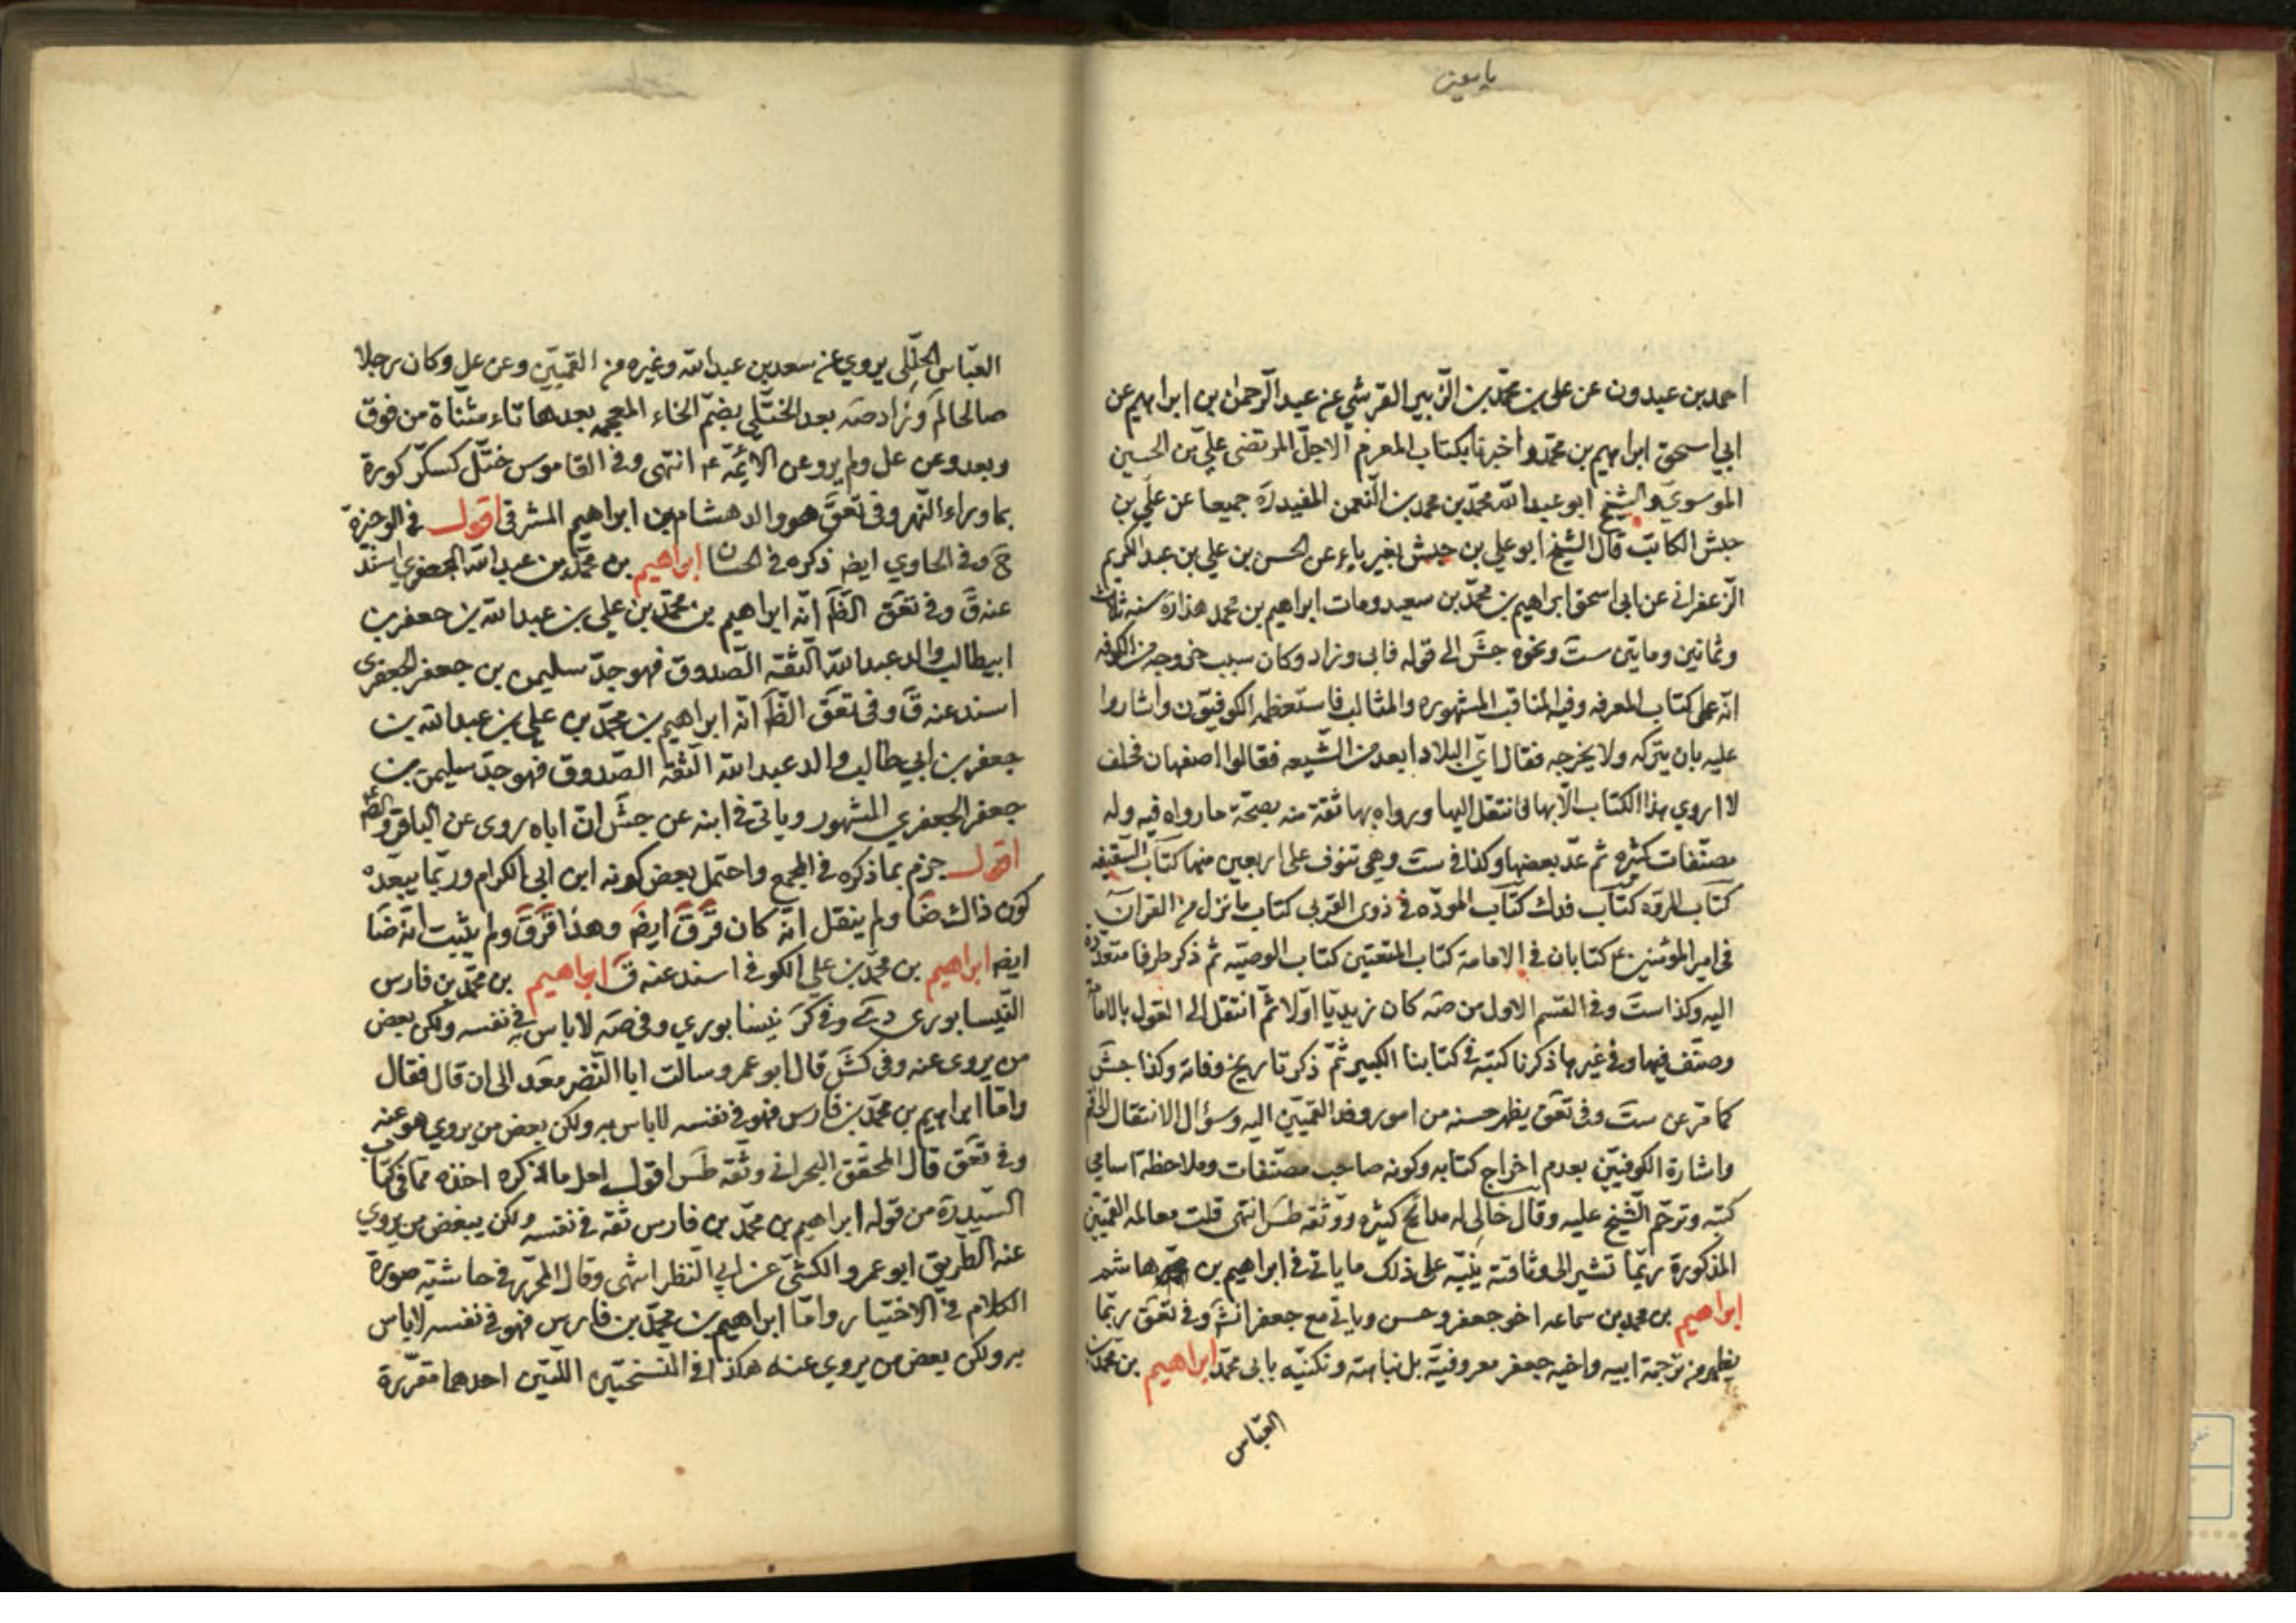 يا معين
احمد بن عبدون عن علي بن محمّد بن الزّبير القرشي عن عبد الرّحمن بن ابراهيم عن
ابي اسحق ابراهيم بن محمّد واخبرنا بكتاب المعرفة الاجلّ المرتضى عليّ بن الحسين
الموسوي والشيخ ابو عبد الله محمّد بن محمد بن النّعمن المفيد ره جميعا عن علي بن
حبش الكاتب قال الشيخ ابو علي بن حبش بغير ياء عن الحسن بن علي بن عبد الكريم
الزّعفراني عن ابي اسحق ابراهيم بن محمّد بن سعيد ومات ابراهيم بن محمد هذا ره سنه ثلاث
وثمانين ومايتين ست ونحوه جش الى قوله فابى وزاد وكان سبب خروجه من الكوفه
انّه عمل كتاب المعرفه وفيه المناقب المشهوره والمثالب فاستعظمه الكوفيّون واشاروا
عليه بان يتركه ولا يخرجه فقال ايّ البلاد ابعد من الشّيعه فقالوا اصفهان فحلف
لا اروي هذا الكتاب الّا بها فانتقل اليها ورواه بها ثقة منه بصحّة ما رواه فيه وله
مصنّفات كثيره ثم عدّ بعضها وكذا في ست وهي تنوف على اربعين منها كتاب السقيفه
كتاب الردّه كتاب فدك كتاب المودّه في ذوى القربى كتاب ما نزل من القران
في امير المؤمنين ع كتابان في الامامة كتاب المتعتين كتاب الوصيّه ثم ذكر طرقا متعدّده
اليه وكذا ست وفي القسم الاول من صه كان زيديّا اوّلا ثمّ انتقل الى القول بالامامة
وصنّف فيها وفي غيرها ذكرنا كتبه في كتابنا الكبير ثمّ ذكر تاريخ وفاته وكذا جش
كما مرّ عن ست وفي تعق يظهر حسنه من امور وفد القميّين اليه وسؤال الانتقال الى قم
واشارة الكوفيّين بعدم اخراج كتابه وكونه صاحب مصنّفات وملاحظة اسامي
كتبه وترحّم الشّيخ عليه وقال خالي له مدائح كثيره ووثّقه طس انتهى قلت معامله القميّين
المذكورة ربّما تشير الى وثاقته ينبّه على ذلك ما ياتي في ابراهيم بن هاشم
ابراهيم بن محمد بن سماعه اخو جعفر وحسن وياتي مع جعفر انش وفي تعق ربّما
يظهر من ترجمة ابيه واخيه جعفر معروفيّته بل نباهته وتكنيّه بابي محمّد ابراهيم بن محمّد بن
العبّاس
العبّاس الختّلي يروي عن سعد بن عبد الله وغيره من القميّين وعن علي وكان رجلا
صالحا لم وزاد صه بعد الختّلي بضمّ الخاء المعجمه بعدها تاء مثناة من فوق
وبعد وعن عل ولم يرو عن الائمّة ع انتهى وفي القاموس ختّل كسكّر كورة
بما وراء النّهر وفي تعق هو والد هشام بن ابراهيم المشرقي اقول في الوجيزة
ح وفي الحاوي ايضه ذكره في الحسان ابراهيم بن محمّد بن عبد الله الجعفري اسند
عنه ق وفي تعق الظّ انّه ابراهيم بن محمّد بن علي بن عبد الله بن جعفر بن
ابيطالب والد عبد الله الثّقه الصّدوق فهو جدّ سليمن بن جعفر الجعفري
اسند عنه ق وفي تعق الظّ انّه ابراهيم بن محمّد بن علي بن عبد الله بن
جعفر بن ابي طالب والد عبد الله الثّقة الصّدوق فهو جدّ سليمن بن
جعفر الجعفري المشهور وياتي في ابنه عن جش انّ اباه روى عن الباقر والصّ
اقول جزم بما ذكره في المجمع واحتمل بعض كونه ابن ابي الكرام وربّما يبعّده
كون ذاك ضا ولم ينقل انّه كان قر ق ايضه وهذا قر ق ولم يثبت انّه ضا
ايضه ابراهيم بن محمّد بن علي الكوفي اسند عنه ق ابراهيم بن محمّد بن فارس
النّيسابوري دي وفي كر نيسابوري وفي صه لا باس به في نفسه ولكن بعض
من يروى عنه وفي كش قال ابو عمرو سالت ابا النّضر محمّد الى ان قال فقال
وامّا ابراهيم بن محمّد بن فارس فهو في نفسه لا باس به ولكن بعض من يروي هو عنه
وفي تعق قال المحقّق البحراني وثّقه طس اقول لعل ما ذكره اخذه ممّا في كتاب
السّيد ره من قوله ابراهيم بن محمّد بن فارس ثقة في نفسه ولكن ببعض من يروي
عنه الطّريق ابو عمرو الكشّي عن ابي النظر انتهى وقال المحرّر في حاشيته صورة
الكلام في الاختيار وامّا ابراهيم بن محمّد بن فارس فهو في نفسه لا باس
به ولكن بعض من يروي عنه هكذا في النّسختين اللّتين احدهما مقرّرة